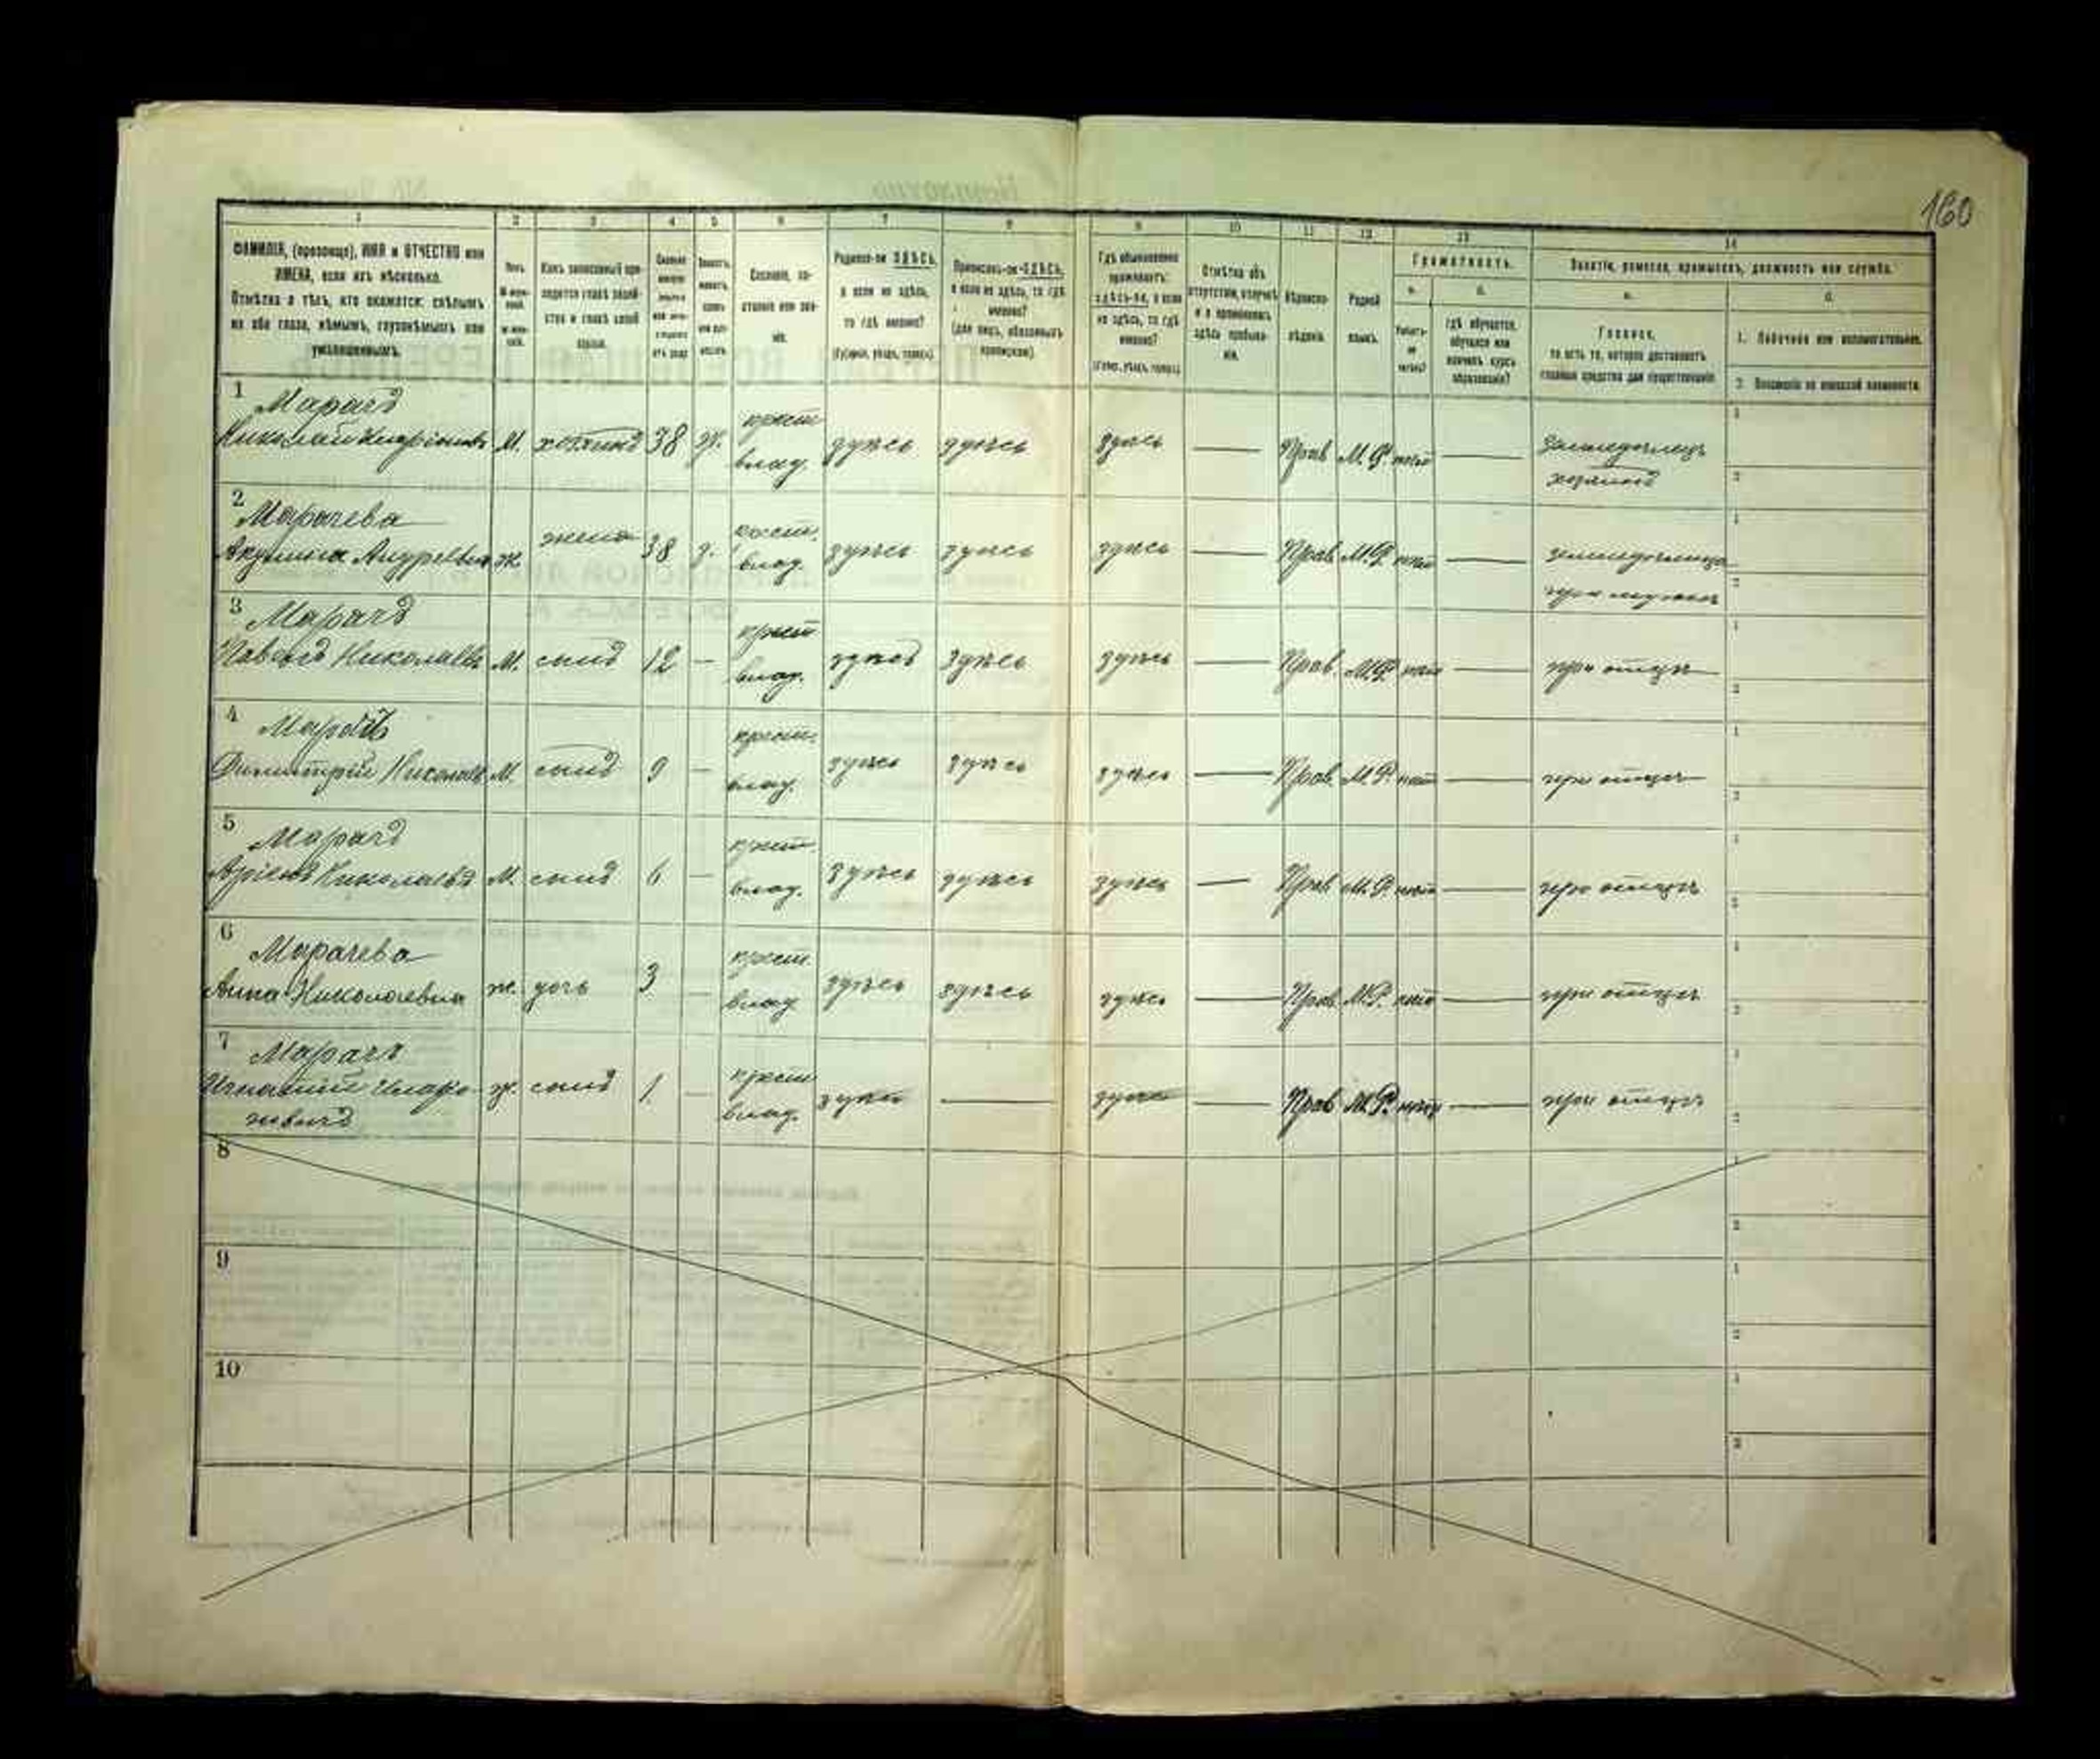 160
1 2 3 4 5 6 7 8 9 10 11 12 13 14
ФАМИЛІЯ, (прозвище), ИМЯ и ОТЧЕСТВО или
ИМЕНА, если ихъ нѣсколько.
Отмѣтка о тѣхъ, кто окажется: слѣпымъ
на оба глаза, нѣмымъ, глухонѣмымъ или
умалишеннымъ.
Полъ
Какъ записанный при-
ходится главѣ хозяй-
ства и главѣ своей
семьи.
Сословіе, со-
стояніе или зва-
ніе.
Родился-ли ЗДѢСЬ,
а если не здѣсь,
то гдѣ именно?
(Губернія, уѣздъ, городъ).
Приписанъ-ли ЗДѢСЬ,
а если не здѣсь, то гдѣ
именно?
(для лицъ, обязанныхъ
припискою).
Гдѣ обыкновенно
проживаетъ:
здѣсь-ли, а если
не здѣсь, то гдѣ
именно?
(Губер., уѣздъ, городъ).
Отмѣтка объ
отсутствіи, отлучкѣ
и о временномъ
здѣсь пребыва-
ніи.
Вѣроиспо-
вѣданіе.
Родной
языкъ.
Грамотность.
а.
б.
Умѣетъ-
ли
читать?
гдѣ обучается,
обучался или
кончилъ курсъ
образованія?
Занятіе, ремесло, промыселъ, должность или служба.
а.
б.
Главное,
то есть то, которое доставляетъ
главныя средства для существованія.
1. Побочное или вспомогательное.
2. Положеніе по воинской повинности.
1 Марачъ крест
Николай М. хозяинъ 38 влад. здѣсь здѣсь здѣсь — Прав М. Р. нѣтъ — земледѣлецъ
хозяинъ
2 Марачева крест.
Акулина Андреевна ж. жена 38 влад. здѣсь здѣсь здѣсь — Прав. М. Р. нѣтъ —
при мужѣ
3 Марачъ крест
Павелъ Николаевъ М. сынъ 12 — влад. здѣсь здѣсь здѣсь — Прав. М. Р. нѣтъ — при отцѣ
4 Марачъ крест.
Димитрій Николаевъ М. сынъ 9 — влад. здѣсь здѣсь здѣсь — Прав. М. Р. нѣтъ — при отцѣ
5 Марачъ крест.
Николаевъ М. сынъ 6 — влад. здѣсь здѣсь здѣсь — Прав М. Р. нѣтъ — при отцѣ
6 Марачева крест.
Анна Николаевна ж. дочь 3 — влад здѣсь здѣсь здѣсь — Прав. М. Р. нѣтъ — при отцѣ
7 Марачъ крест
Игнатий сынъ 1 — влад. — — Прав М. Р. нѣтъ — при отцѣ
8
9
10